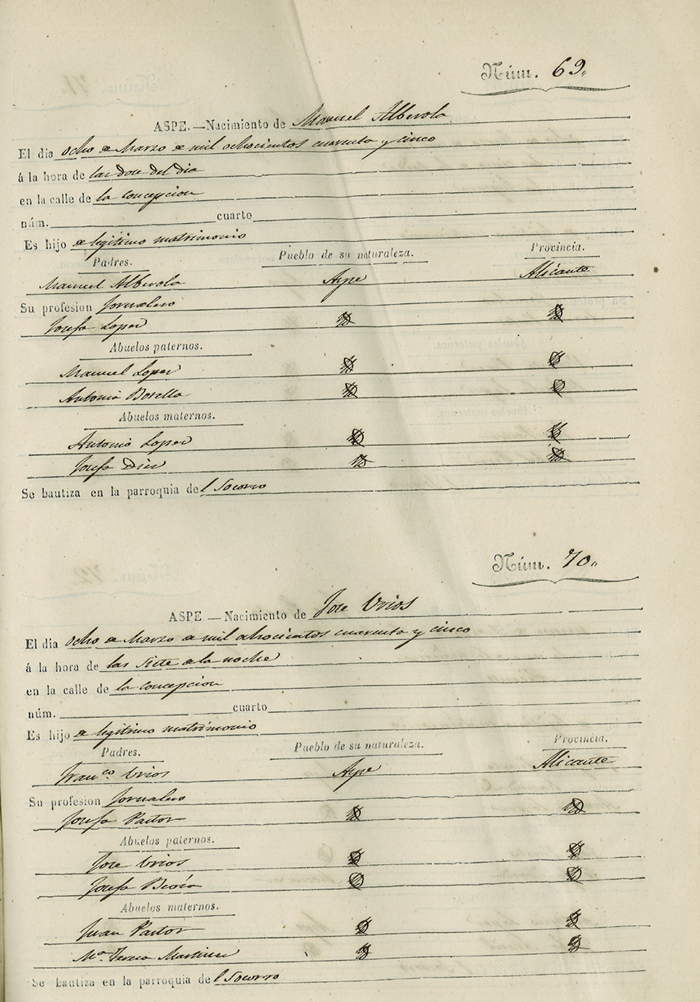 Núm. 69.
ASPE.—Nacimiento de Manuel Alberola
El dia ocho de Marzo de mil ochocientos cuarenta y cinco
á la hora de las doce del dia
en la calle de la Concepcion
núm. cuarto
Es hijo de legitimo matrimonio
Padres. Pueblo de su naturaleza. Provincia.
Manuel Alberola Aspe Alicante
Su profesion Jornalero
Josefa Lopez
Abuelos paternos.
Manuel Lopez
Antonia Botella
Abuelos maternos.
Antonio Lopez
Josefa
Se bautiza en la parroquia del Socorro
Núm. 70.
ASPE —Nacimiento de Jose Urios
El dia ocho de Marzo de mil ochocientos cuarenta y cinco
á la hora de las siete de la noche
en la calle de la Concepcion
núm. cuarto
Es hijo de legitimo matrimonio
Padres. Pueblo de su naturaleza. Provincia.
Franco. Urios Aspe Alicante
Su profesion Jornalero
Josefa Pastor
Abuelos paternos.
Jose Urios
Josefa
Abuelos maternos.
Juan Pastor
Ma. Teresa Martinez
Se bautiza en la parroquia del Socorro